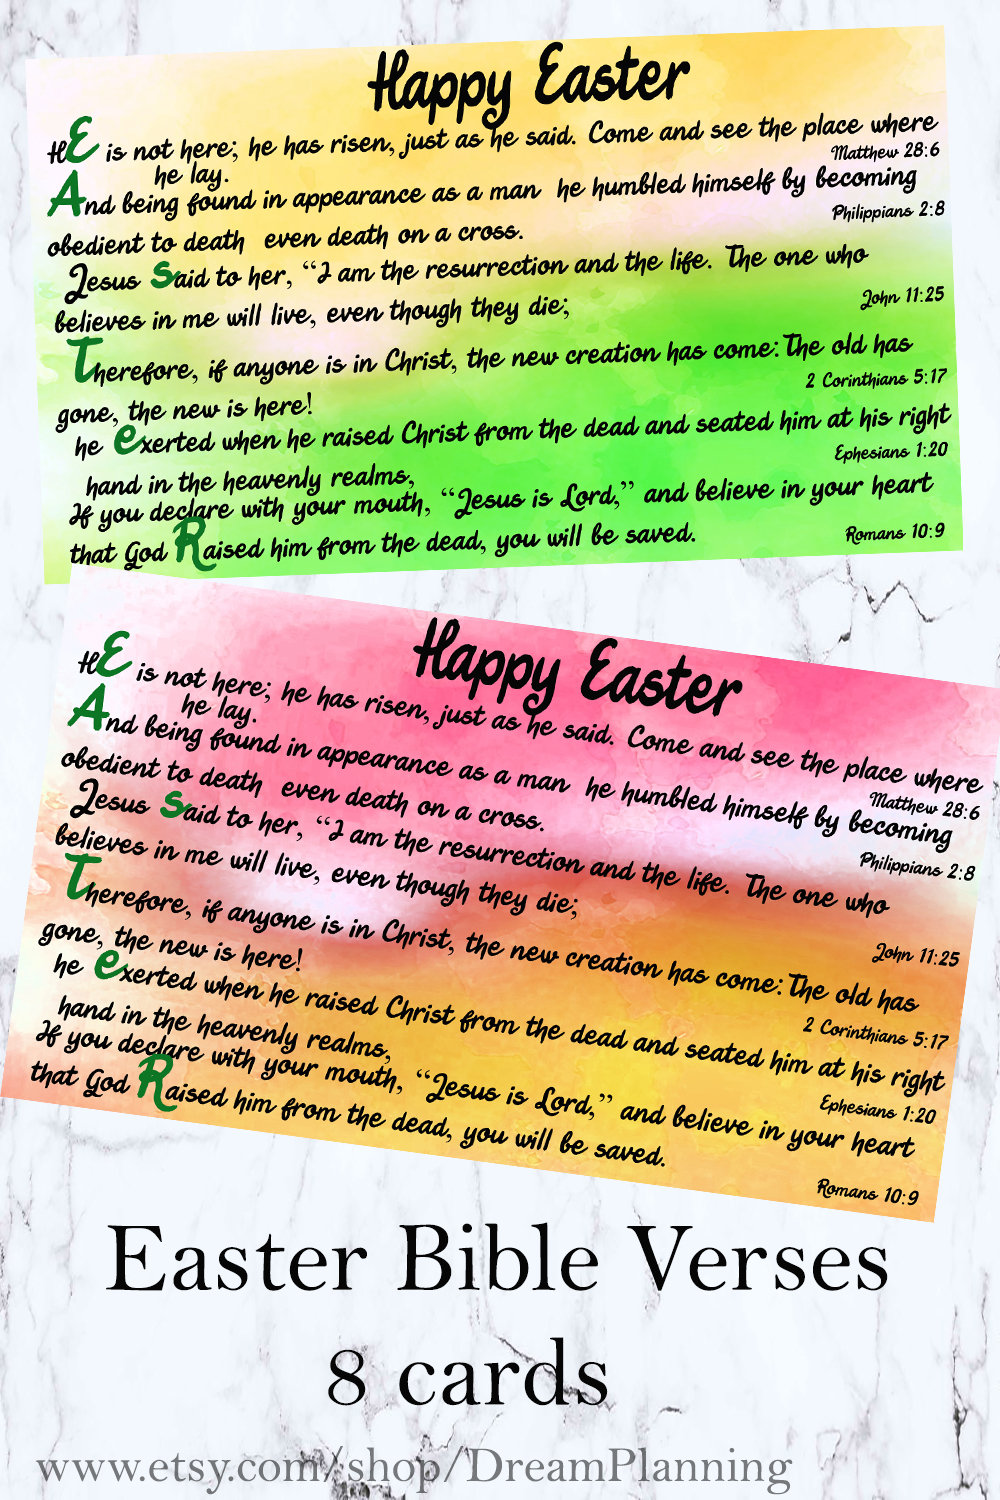 Happy Easter
HE is not here; he has risen, just as he said. Come and see the place where
Matthew 28:6
he lay.
And being found in appearance as a man he humbled himself by becoming
Philippians 2:8
obedient to death even death on a cross.
Jesus said to her, “I am the resurrection and the life. The one who
John 11:25
believes in me will live, even though they die;
Therefore, if anyone is in Christ, the new creation has come: The old has
2 Corinthians 5:17
gone, the new is here!
he exerted when he raised Christ from the dead and seated him at his right
Ephesians 1:20
hand in the heavenly realms,
If you declare with your mouth, “Jesus is Lord,” and believe in your heart
that God Raised him from the dead, you will be saved.
Romans 10:9
Happy Easter
HE is not here; he has risen, just as he said. Come and see the place where
Matthew 28:6
he lay.
And being found in appearance as a man he humbled himself by becoming
Philippians 2:8
obedient to death even death on a cross.
Jesus said to her, “I am the resurrection and the life. The one who
John 11:25
believes in me will live, even though they die;
Therefore, if anyone is in Christ, the new creation has come: The old has
2 Corinthians 5:17
gone, the new is here!
he exerted when he raised Christ from the dead and seated him at his right
Ephesians 1:20
hand in the heavenly realms,
If you declare with your mouth, “Jesus is Lord,” and believe in your heart
that God Raised him from the dead, you will be saved.
Romans 10:9
Easter Bible Verses
8 cards
www.etsy.com/shop/DreamPlanning